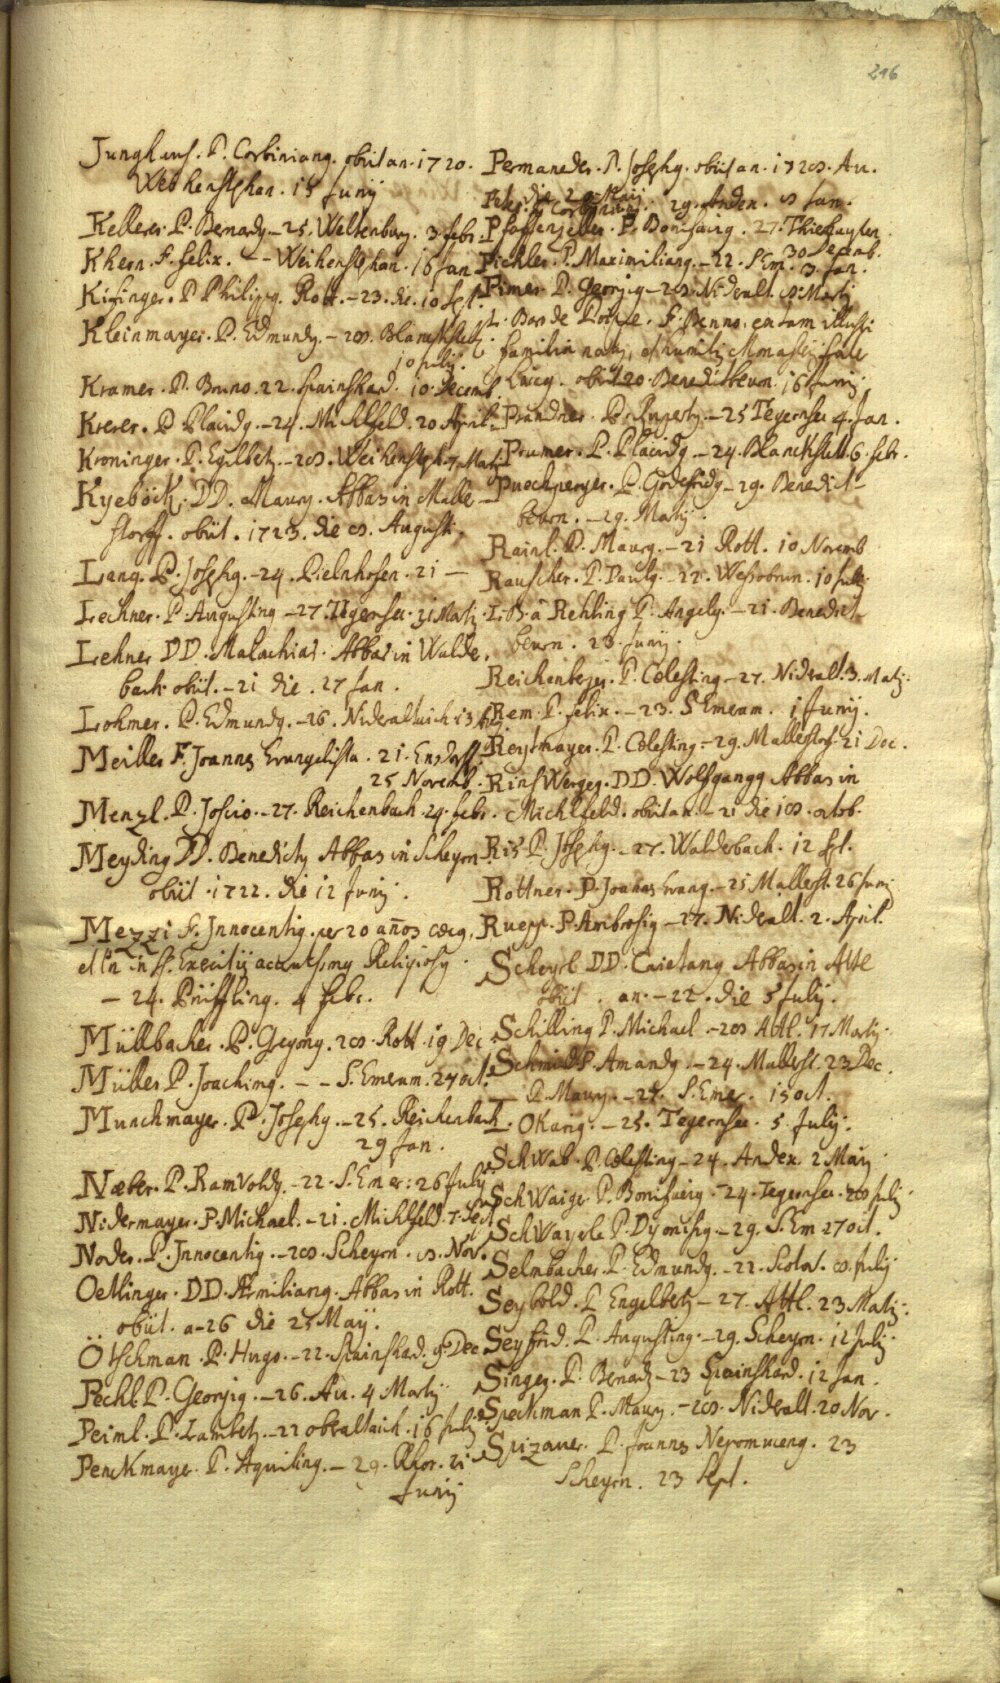 216
Junghans. P. Corbiniang. obiit an. 1720.
Weihenstphan. 15 Junij
Kellerer. P. Bernardg. – 25. Weltenburg. 3. febr.
Khern. F. Felix. – – Weihenstphan. 16 Jan
Kizinger. P Philippg. Rott. – 23. die. 10 Sept.
Kleinmayer. P. Edmundg. – 28. Blanckstett.
10 Julij.
Kramer. P. Bruno. 22. Spainshard. 10. Decemb.
Krerer. P Placidg. – 24. Michlfeld. 20 April.
Kroninger. P. Egilbertg. – 28. Weihenstph. 7. Martij
Kyeböck. DD. Maurg. Abbas in Malle–
storff. obiit. 1723. die 8. Augusti.
Lang. P. Josephg. – 24. Pielnhofen. 21 –
Lechner. P. Augusting – 27. Tegernsee. 21 Martij.
Lehner DD. Malachias. Abbas in Walde.
bach. obiit. – 21 die. 27 Jan.
Lohmer. P. Edmundg. – 26. Nideraltaich. 13
Meiller F. Joannes Evangelista. 21. Ensdorff.
25 Novemb.
Menzl. P. Joscio. – 27. Reichenbach. 24. febr.
Meyding DD. Benedictg Abbas in Scheyrn
obiit. 1722. die 12 Junij.
Mezzi F. Innocentig. per 20 años cæcg,
et in Exercitijs Religiosg.
– 24. Prüffling. 4 febr.
Müllbacher. P. Gregorig. 28. Rott. 19 Dec.
Müller P. Joachimg. – – S. Emeram. 27 oct.
Munchmayer. P. Josephg. – 25. Reichenbach
29 Jan.
Næber. P. Ramvoldg. – 22. S. Emer: 26 July
Nidermayer. P. Michael. – 21. Michlfeld. 7. Sept.
Noder. P. Innocentig. – 28. Scheyrn. 8. Nov.
Oettlinger. DD. Æmiliang. Abbas in Rott.
obiit. a– 26 die 25 Maij.
Ötschman. P. Hugo. – 22. Spainshad. 9 Dec
Pechl. P. Georgig. – 26. Au. 4 Martij
Peiml. P. Lambertg. – 22 oberaltaich. 16 July
Penckmayer. P. Aquiling. – 29. Rhor. 21
Junij
Permaneder. P. Josephg. obiit an. 1728. Au.
die 2 Maij
P. Corbiniang. 29. Andex. 8 Jan.
Pfaffenzeller. P. Bonifacig. 27. Thierhaupten.
30 Decemb.
Pichler. P. Maximiliang. – 22. S. Em. 3. Jan.
Pirner. P. Georgig – 28. Nideralt. 8. Martij
L. Bar de F. Benno, ex tam illustri
familia natg,
Lucg. obiit 20. Benedictbeurn. 16 Junij.
Prandner. P. Rupertg. – 25 Tegernsee 4. Jan.
Prumer. P. Placidg – 24. Blanckstett. 6. febr.
Puochperger. P. Godefridg – 29. Benedict–
beurn. – 29. Martij.
Rainl. P. Maurg. – 21 Rott. 10 Novemb
Rauscher. P. Paulg. – 22. Wessobrun. 10 July
L. B. a Rehling P. Angelg. – 21. Benedict
beurn. 28. Junij.
Reichenberger. P. Cœlesting – 27. Nideralt. 3. Martij.
Rem. P. Felix. – 23. S Emeram. 1 Junij.
Reytmayer. P. Cœlesting – 29. Mallestorf. 21 Dec.
DD. Wolfgangg Abbas in
Michlfeld. obiit an. – 21 die 18. octob.
Ris P. Josephg. – 27. Walderbach. 12 Sept.
Rottner. P. Joannes Evang. – 25 Mallerst. 26 Junij
Ruepp. P. Ambrosig – 27. Nideralt. 2. April.
Scheyrl DD. Cajetang Abbas in Attl
obiit. an. – 22. die 5 July.
Schilling P. Michael – 28 Attl. 17 Martij.
Schmidt P. Amandg. – 24. Mallerst. 23 Dec.
– P. Maurg. – 24. S. Emer. 15 oct.
L. Okarig. – 25. Tegernsee. 5 July.
Schwab. P. Cœlesting – 24. Andex. 2 Maij
Schwaiger P. Bonifacig – 24. Tegernsee. 28 July
P. Dÿonisig – 29. S. Em 27 oct.
Selmbacher. P. Edmundg. – 22. Scotor. 8. July
Seybold. P Engelbertg – 27. Attl. 23 Martij.
Seyfrid. P. Augusting. – 29. Scheyrn. 12 July.
Singer. P. Bernardg – 23 Spainshard. 12 Jan.
Speckman P. Maurg. – 28. Nideralt. 20 Nov.
Spizauer. P. Joannes Nepomuceng. 23
Scheyrn. 23 Sept.